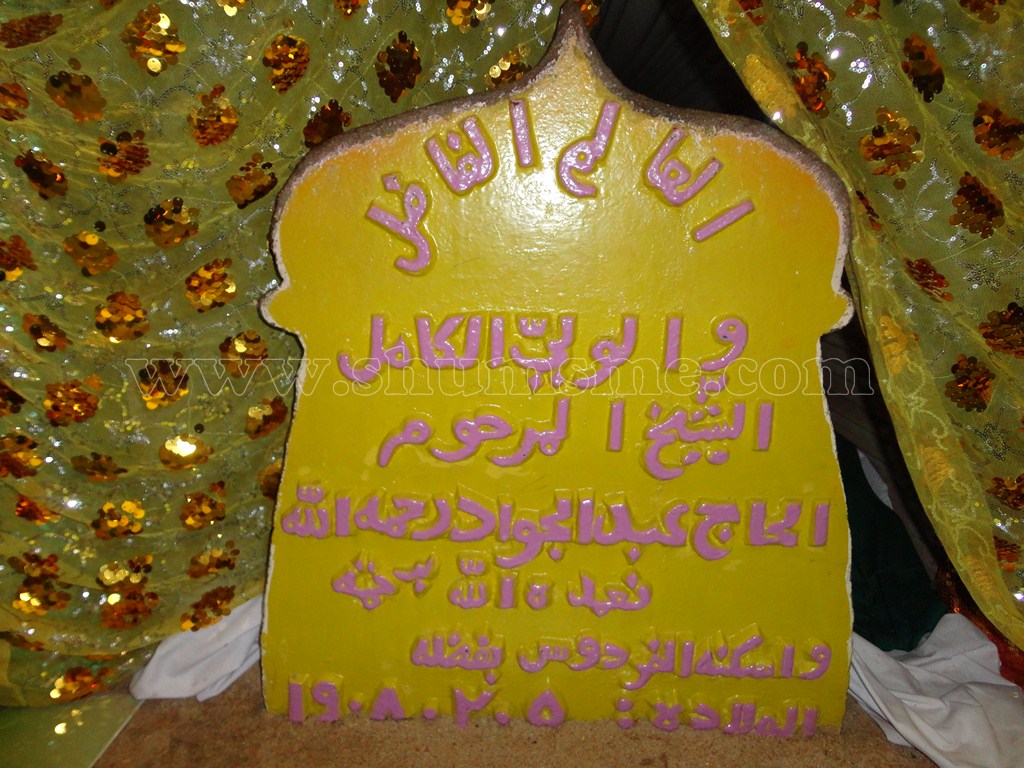 العالم الفاضل
والولي الكامل
الشيخ المرحوم
الحاج عبد الجواد رحمه الله
تغمده الله برحمته
واسكنه الفردوس بفضله
الملاده: ١٩٠٨.٢.٥
www.shunisine.com